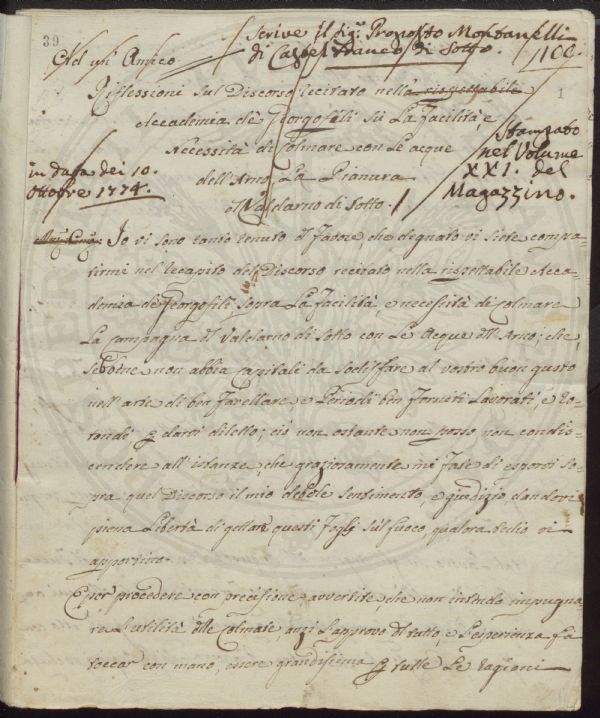 39
Scrive il Sig.r Proposto Montanelli
Ad un Amico di Castel Franco di Sotto. 1100.
Riflessioni sul Discorso recitato nella rispettabile
1
Accademia de' Georgofili sù La Facilità, e
Necessità di Colmare con Le acque
dell'Arno, La Pianura
Il Valdarno di Sotto.
Stampato
nel Volume
XXI. del
Magazzino.
in data dei 10.
Ottobre 1774.
Io vi sono tanto tenuto il Favore che degnato vi siete compa=
rtirmi nel recapito del Discorso recitato nella rispettabile Acca=
demia de' Georgofili sopra La Facilità, e necessità di Colmare
La campagna Il Valdarno di Sotto con Le Acque dell'Arno; che
sebbene non abbia Capitali da sodisfare al vostro buon gusto
nell'arte di ben Favellare, e Periodi ben Forniti Lavorati, e ro=
tondi p darvi diletto; ciò non ostante non posso non condis=
cendere all'istanze, che graziosamente mi Fate di esporvi so=
pra quel Discorso il mio debole sentimento, e giudizio, dandovi
piena Libertà di gettare questi Foglj sul fuoco, qualora tedio vi
apportino.
E per procedere con precisione avvertite che non intendo impugna
re L'utilità dlle Colmate, anzi L'approvo Il tutto, e L'esperienza fa
toccar con mano, essere grandissima p tutte Le ragioni